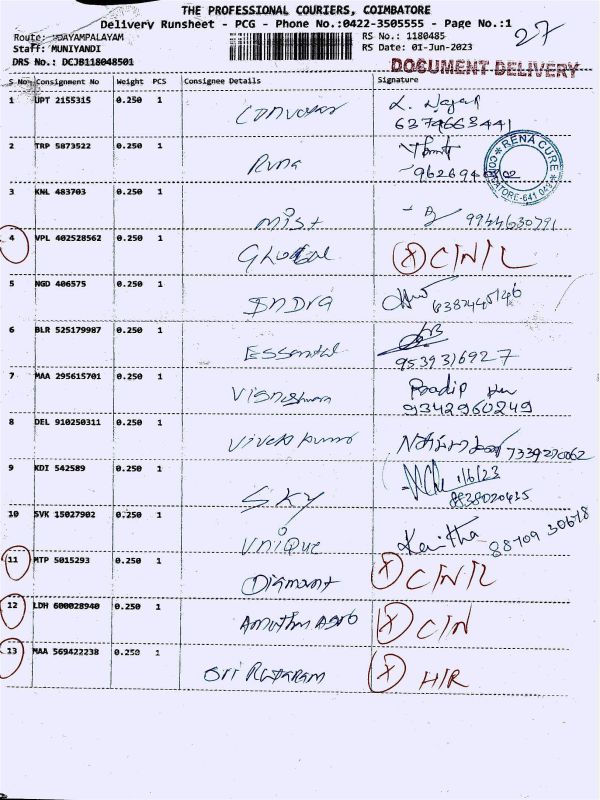 THE PROFESSIONAL COURIERS, COIMBATORE
Delivery Runsheet - PCG - Phone No.:0422-3505555 - Page No.:1
Route: UDAYAMPALAYAM RS No.: 1180485 27
Staff: MUNIYANDI RS Date: 01-Jun-2023
DRS No.: DCJB118048501 DOCUMENT DELIVERY
S No. Consignment No Weight PCS Consignee Details Signature
1 UPT 2155315 0.250 1
6379663441
2 TRP 5873522 0.250 1 Rena RENA CURE
3 KNL 483703 0.250 1 Mist 9944630791
4 VPL 402528562 0.250 1 Global X C/N/L
5 NGD 406575 0.250 1 Indra
6 BLR 525179987 0.250 1 Essential
9539316927
7 MAA 295615701 0.250 1 Vigneshwara Pradip
9342960249
8 DEL 910250311 0.250 1 7339270062
9 KDI 542589 0.250 1 SKY 1/6/23
8838020415
10 SVK 15027902 0.250 1 Unique Kavitha 88709 30678
11 MTP 5015293 0.250 1 Diamount X C/N/L
12 LDH 600028940 0.250 1 Amuthm Agro X C/N
13 MAA 569422238 0.250 1 Sri Rajaram X H/R